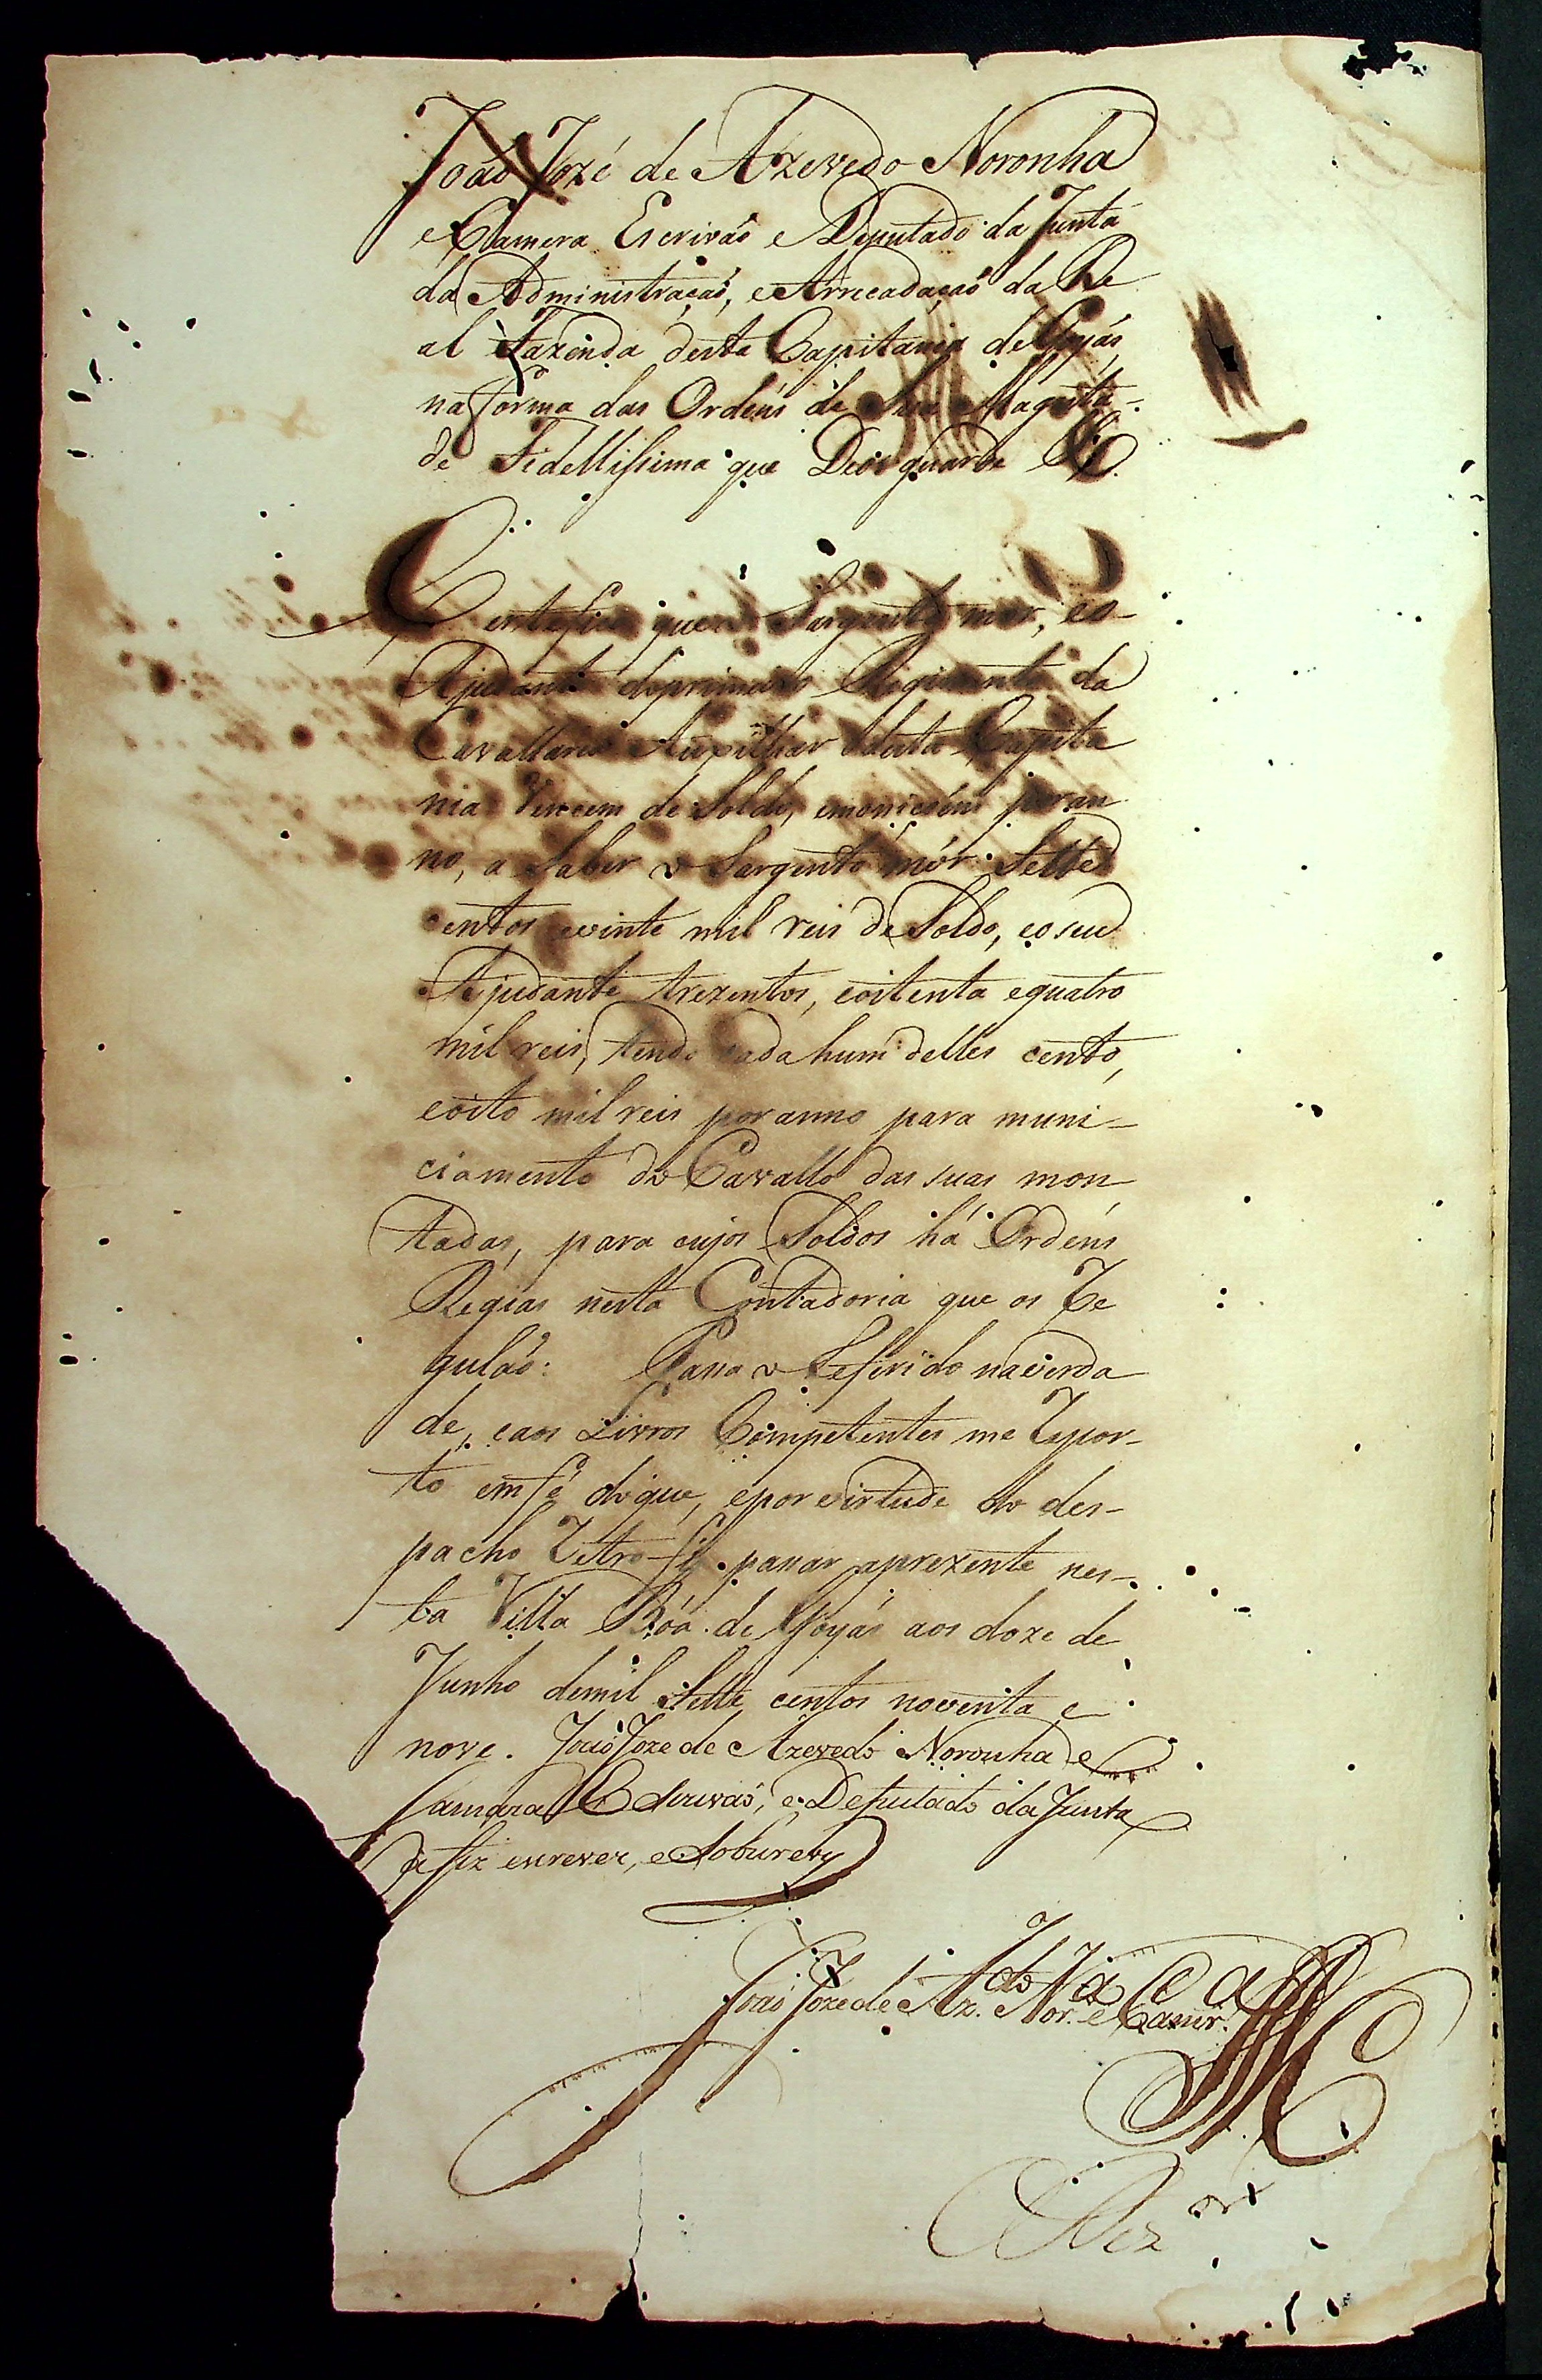 João Jozé de Azevedo Noronha
e Camera Escrivaõ e Deputado da Junta
da Administraçaõ, e Arrecadaçaõ da Re
al Fazenda desta Capitania de Goyás,
na forma das Ordeñs de Sua Magesta-
de Fidellissima que Deos guarde &.
Certefico que o Sargento mor, eo
Ajudante do primeiro Regimento da
Cavallaria Auxilliar desta Capita
nia Vencem de Soldo, e monicoéns por an
no, a Saber o Sargento mór Sette
centos e vinte mil reis de Soldo, eo seu
Ajudante trezentos, e oitenta e quatro
mil reis, tendo cada hum delles cento,
e oito mil reis por anno para muni-
ciamento do Cavallo das suas mon
tadas, para cujos Soldos há Ordéns
Regias nesta Contadoria que os Re
gulaõ: Passa o Referido na verda
de, e aos Livros Competentes me Repor-
to em fé do que, e por virtude do des-
pacho Retro fiz passar a prezente nes-
ta Villa Bôa de Goyás aos doze de
Junho de mil Sette centos noventa e
nove. João Joze de Azevedo Noronha e
Camara Escrivaõ, e Deputado da Junta
a fiz escrever, e Sobscrevy
João Joze de Az.do Nor.a e Camr.a